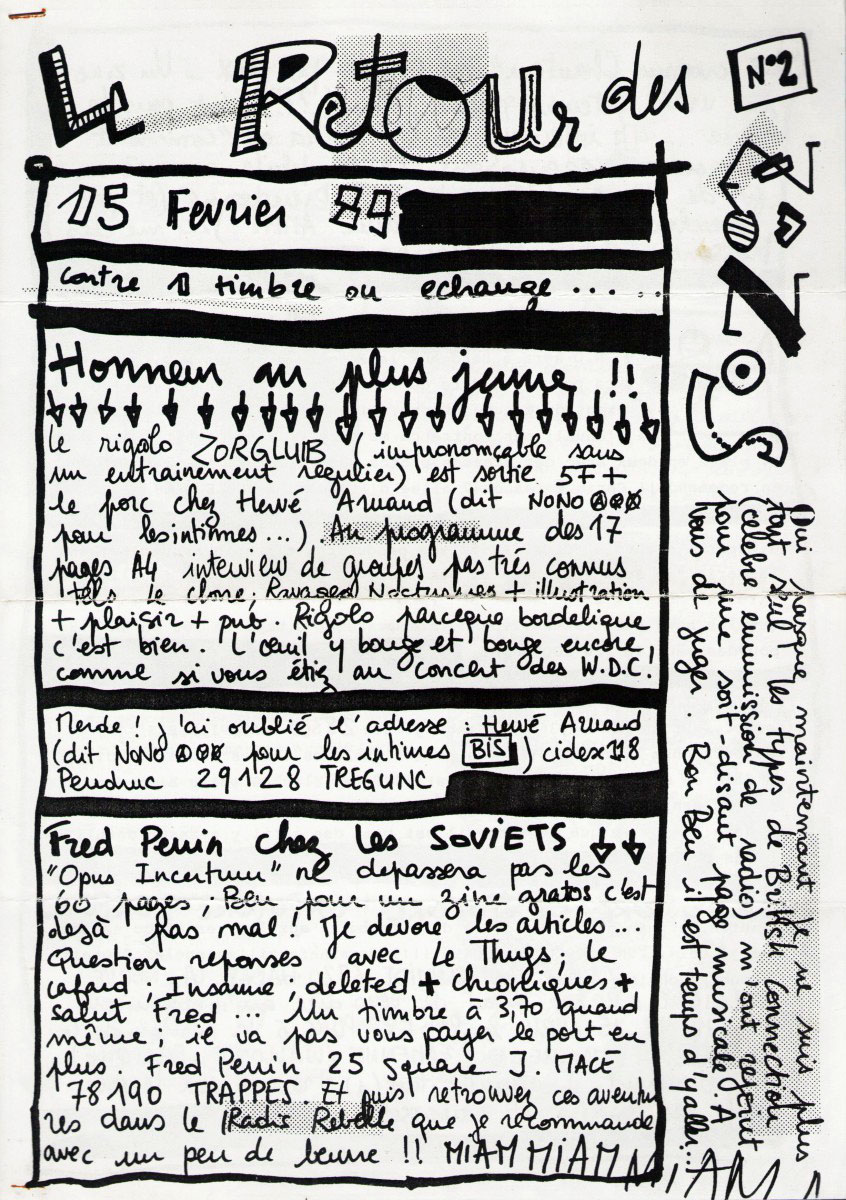 Le Retour des
N°2
ZoZos
15 Fevrier 89
contre 1 timbre ou echange.....
Honneur au plus jeune !!
Le rigolo ZORGLUIB (impronomçable sans
un entrainement regulier) est sortie 5F+
le porc chez Hervé Arnaud (dit NoNo
pour les intimes...). Au programme des 17
pages A4 interview de groupes pas trés connus
tels le clone; Ravaged Nocturnes + illustration
+ plaisir + pub. Rigolo parceque bordelique
c'est bien. L'oeuil y bouge et bouge encore,
comme si vous étiez au concert des W.D.C!
Merde! j'ai oublié l'adresse : Hervé Arnaud
(dit NoNo pour les intimes BiS) cidex 118
Pendruc 29128 TREGUNC
Fred Perrin chez les SOViETS
"Opus Incertum" ne depassera pas les
60 pages; Ben pour un zine gratos c'est
dejà pas mal! Je devore les articles...
Question reponses avec Le Thugs; le
cafard; Insanne; deleted + chroniques +
salut Fred... Un timbre à 3,70 quand
même; il va pas vous payer le port en
plus. Fred Perrin 25 square J. MACÉ
78190 TRAPPES. Et puis retrouvez ces aventu
res dans le Radis Rebelle que je recommande
avec un peu de beurre !! MiAM MiAM MiAM
Oui pasque maintenant je ne suis plus
tout seul. les types de British Connection
(celebre emmission de radio) m'ont rejoint
pour une soit-disant page musicale. A
vous de juger. Bon Ben il est temps d'y aller...